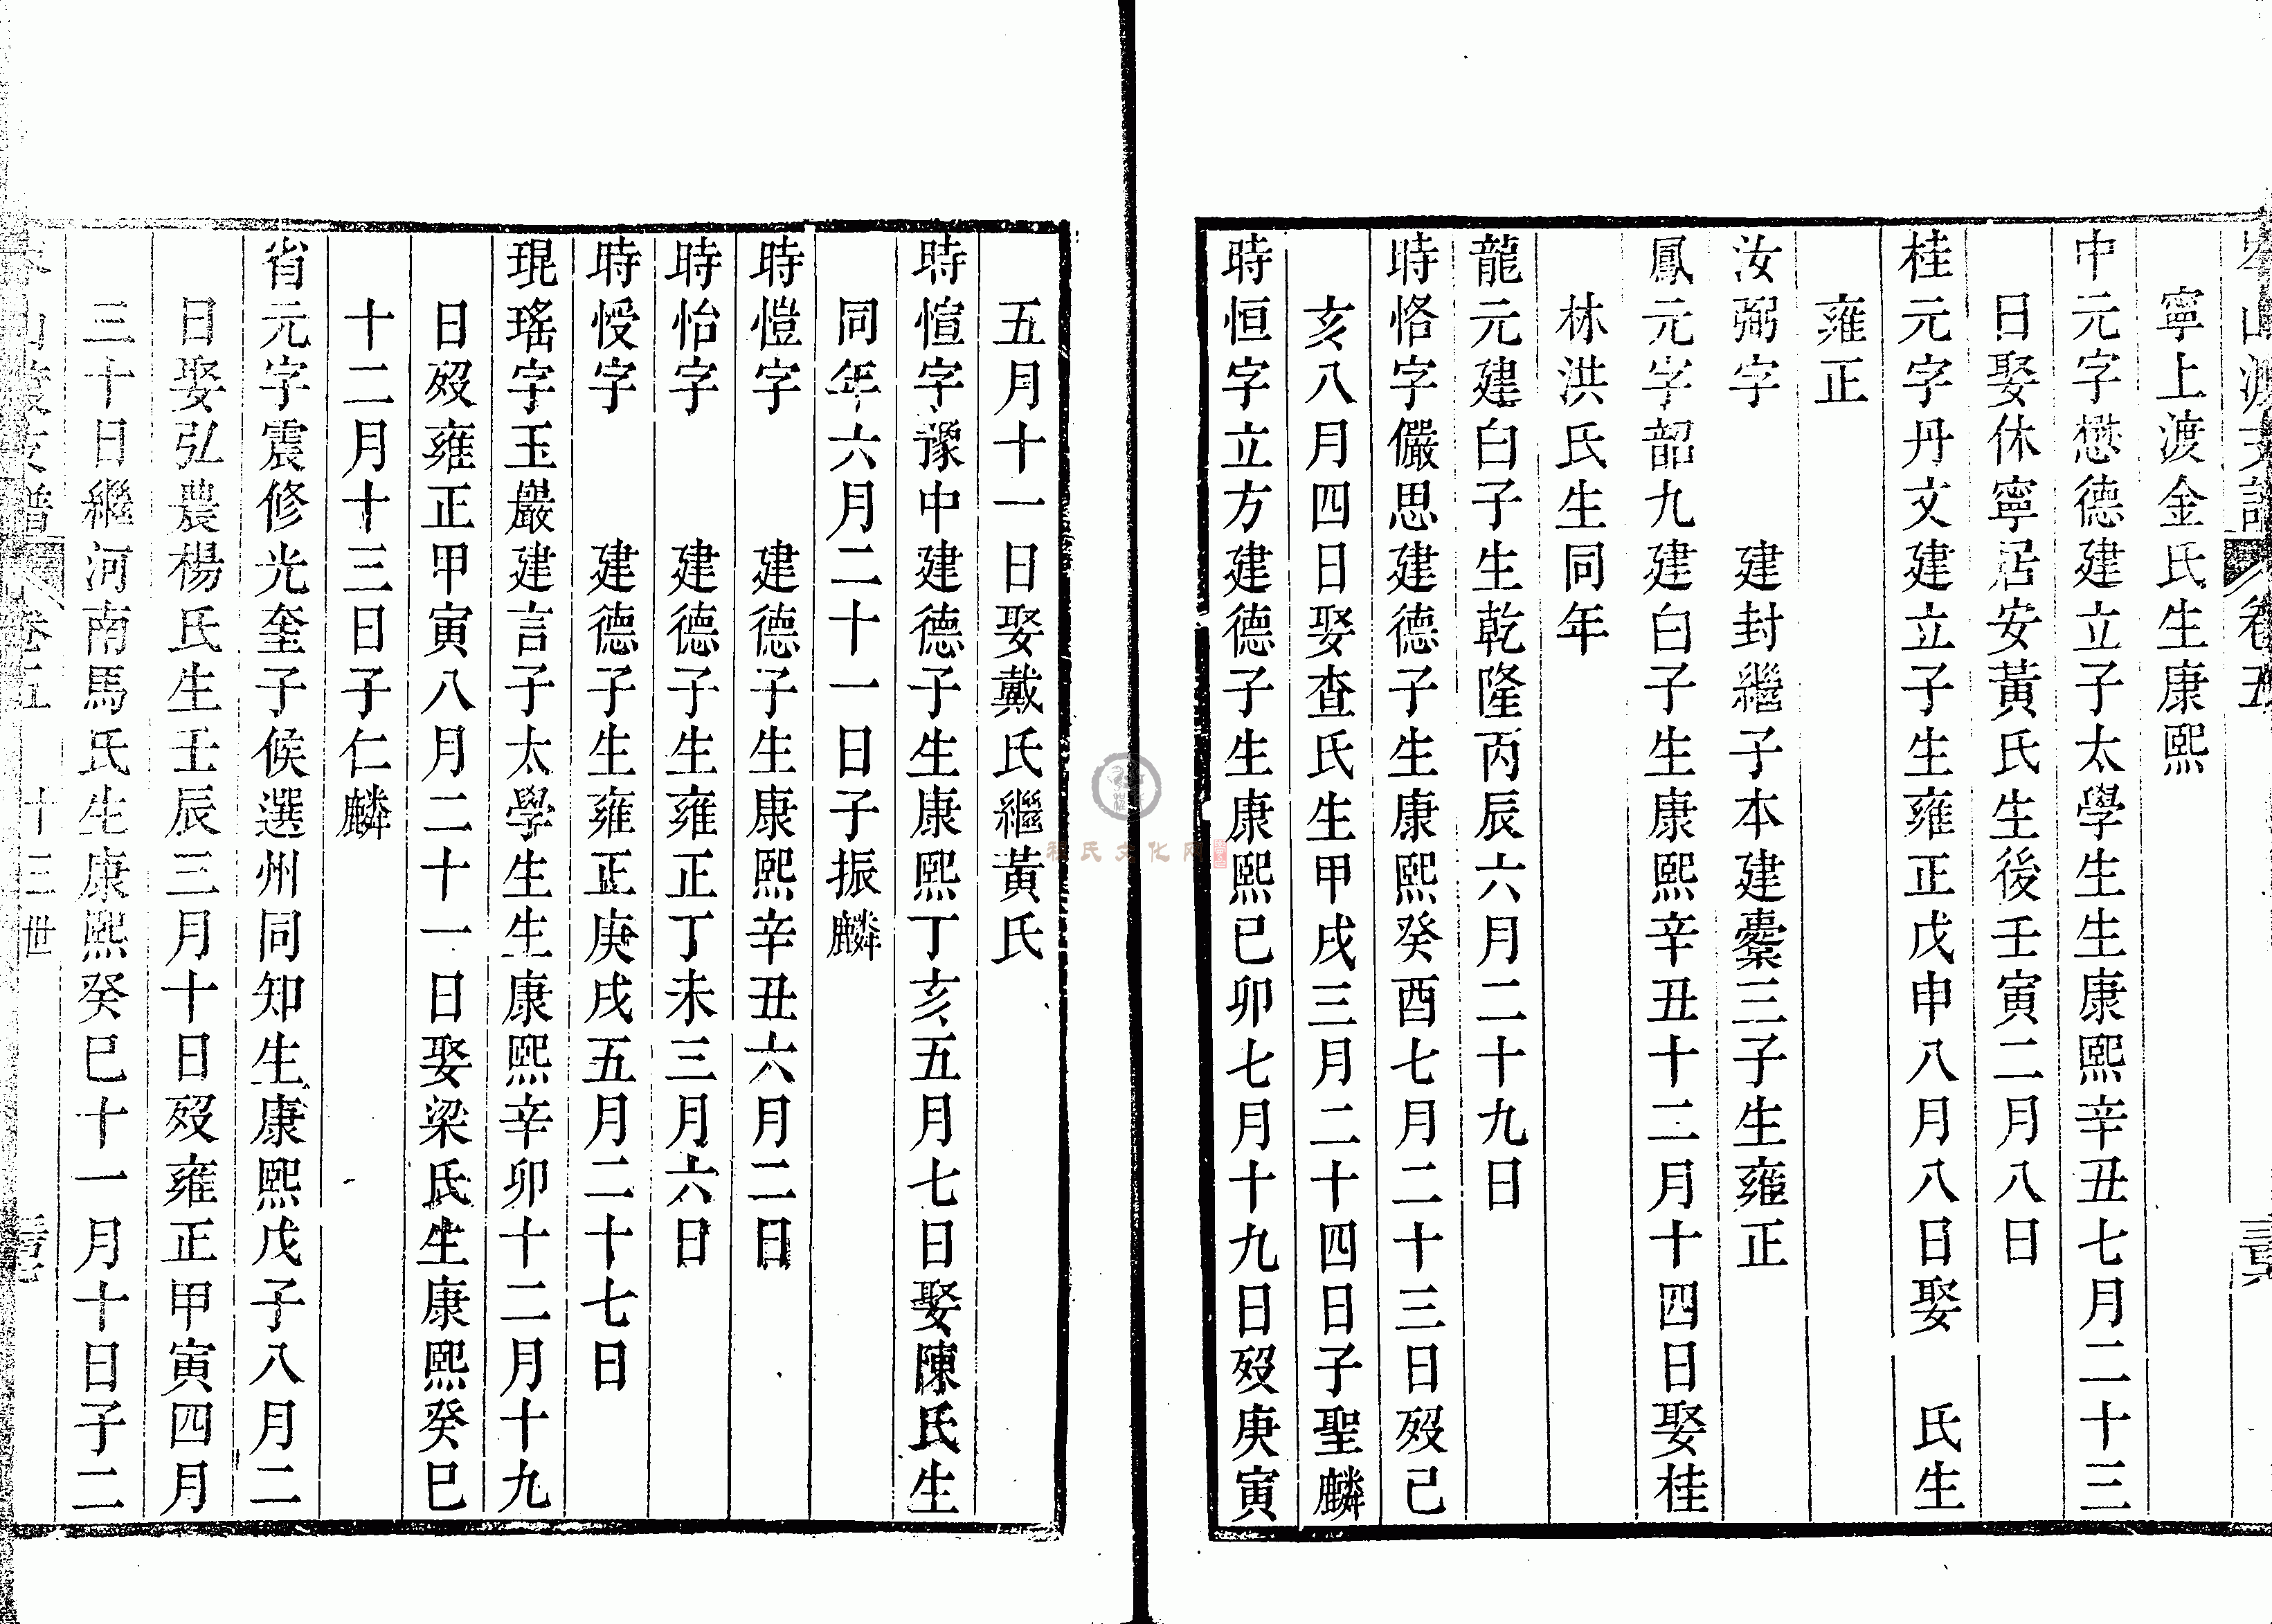 岑山渡支譜 卷五
寧上渡金氏生康熙
中元字懋德建立子太學生生康熙辛丑七月二十三
日娶休寧居安黃氏生後壬寅二月八日
桂元字丹文建立子生雍正戊申八月八日娶 氏生
雍正
汝弼字 建封繼子本建櫜三子生雍正
鳳元字韶九建白子生康熙辛丑十二月十四日娶桂
林洪氏生同年
龍元建白子生乾隆丙辰六月二十九日
時恪字儼思建德子生康熙癸酉七月二十三日歿己
亥八月四日娶查氏生甲戌三月二十四日子聖麟
時恒字立方建德子生康熙己卯七月十九日歿庚寅
五月十一日娶戴氏繼黃氏
時愃字豫中建德子生康熙丁亥五月七日娶陳氏生
同年六月二十一日子振麟
時愷字 建德子生康熙辛丑六月二日
時怡字 建德子生雍正丁未三月六日
時㥅字 建德子生雍正庚戌五月二十七日
琨瑤字玉巖建言子太學生生康熙辛卯十二月十九
日歿雍正甲寅八月二十一日娶梁氏生康熙癸巳
十二月十三日子仁麟
省元字震修光奎子候選州同知生康熙戊子八月二
日娶弘農楊氏生壬辰三月十日歿雍正甲寅四月
三十日繼河南馬氏生康熙癸巳十一月十日子二
山渡支譜 卷五 十三世
程氏文化网